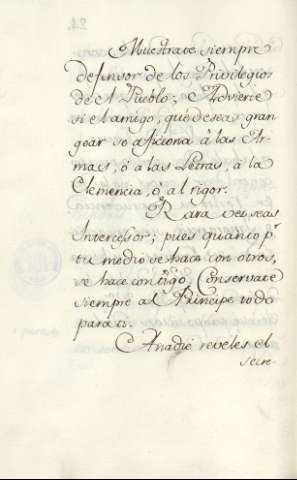 Muestrate siempre
defensor de los Privilegios
de el Pueblo; Advierte
si el amigo, que deseas gran
gear se aficiona à las Ar-
mas, ò a las Letras, à la
Clemencia, ò al rigor.
Rara vez seas
Intercessor; pues quanto pr.
tu medio se hace con otros,
se hace contigo. Conservate
siempre al Principe todo
para ti.
A nadie reveles el
secre-